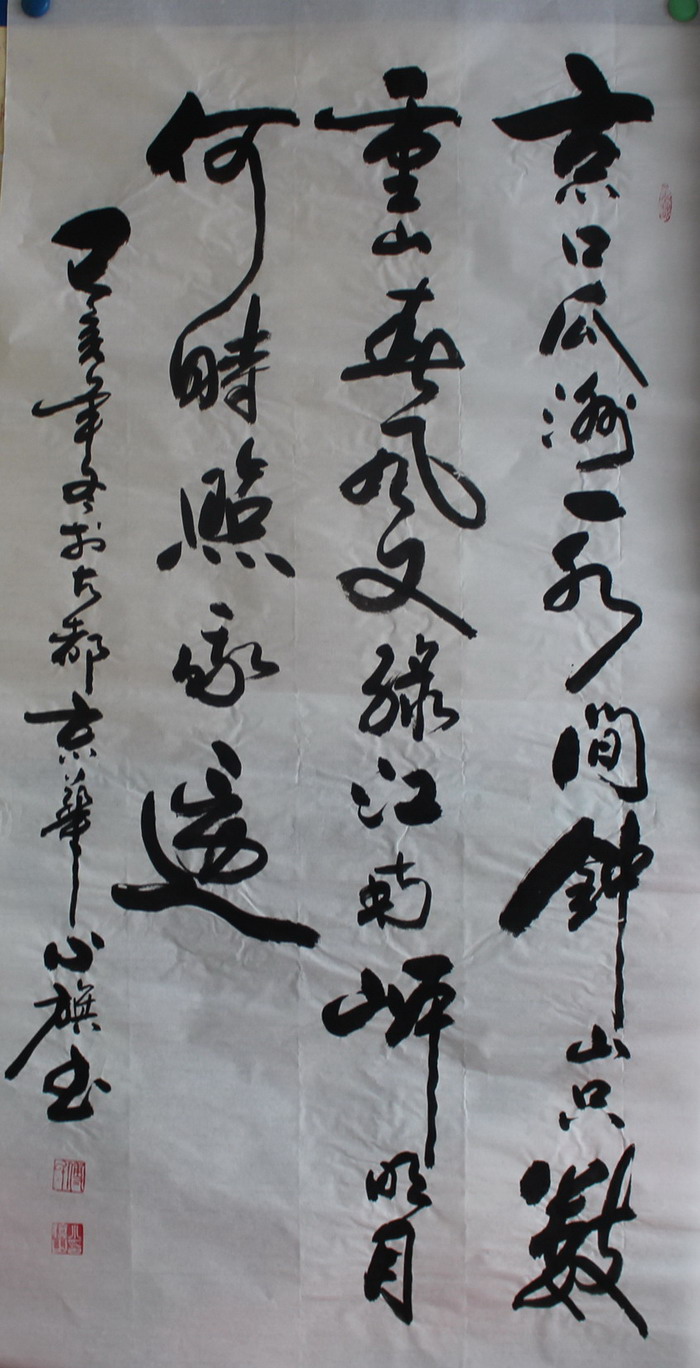 京口瓜洲一水間鐘山只數
重山春風又綠江南岸明月
何時照我還
己亥年冬於古都京華心旗書